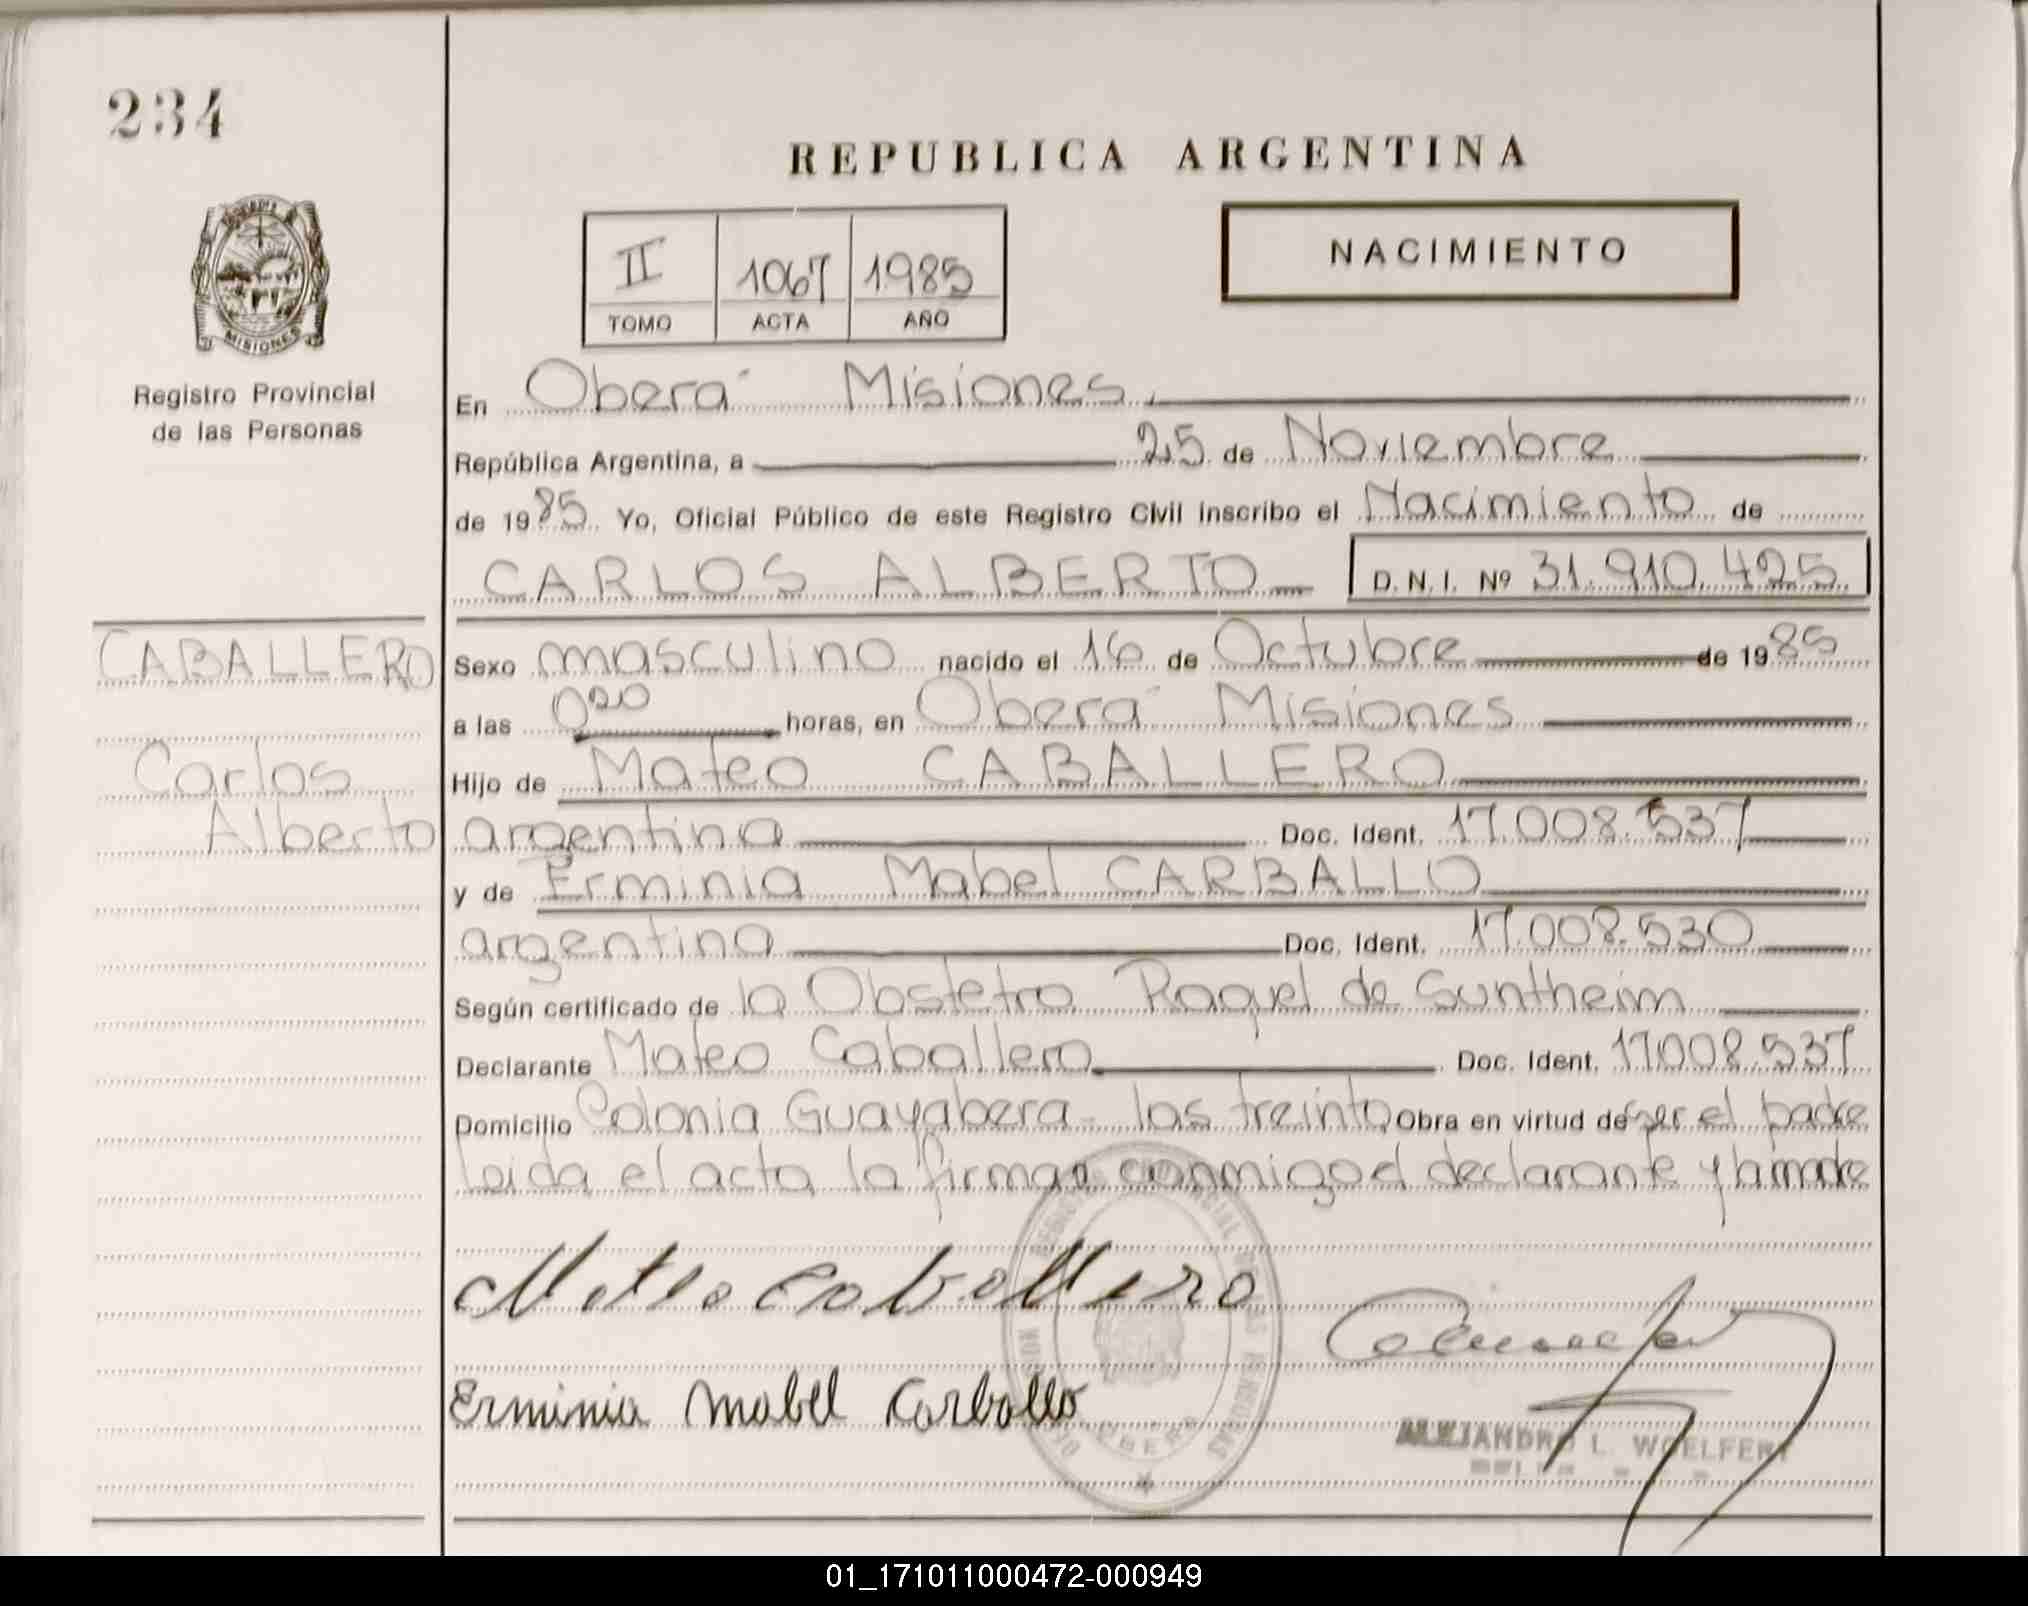 234
REPUBLICA ARGENTINA
NACIMIENTO
II 1067 1985
TOMO ACTA AÑO
MISIONES
Registro Provincial
de las Personas
En Oberá Misiones
República Argentina, a 25 de Noviembre
de 1985 Yo, Oficial Público de este Registro Civil inscribo el Nacimiento de
CARLOS ALBERTO D.N.I. Nº 31.910.425
CABALLERO
Carlos
Alberto
Sexo masculino nacido el 16 de Octubre de 1985
a las 0 20 horas, en Oberá Misiones
Hijo de Mateo CABALLERO
argentina Doc. Ident. 17.008.537
y de Erminia Mabel CARBALLO
argentina Doc. Ident. 17.008.530
Según certificado de la Obstetra Raquel de Suntheim
Declarante Mateo Caballero Doc. Ident. 17.008.537
Domicilio Colonia Guayabera - los treinta Obra en virtud de ser el padre
Leida el acta la firman conmigo el declarante y la madre
Mateo Caballero
Erminia Mabel Carballo
ALEJANDRO L. WOELFERT
01_171011000472-000949